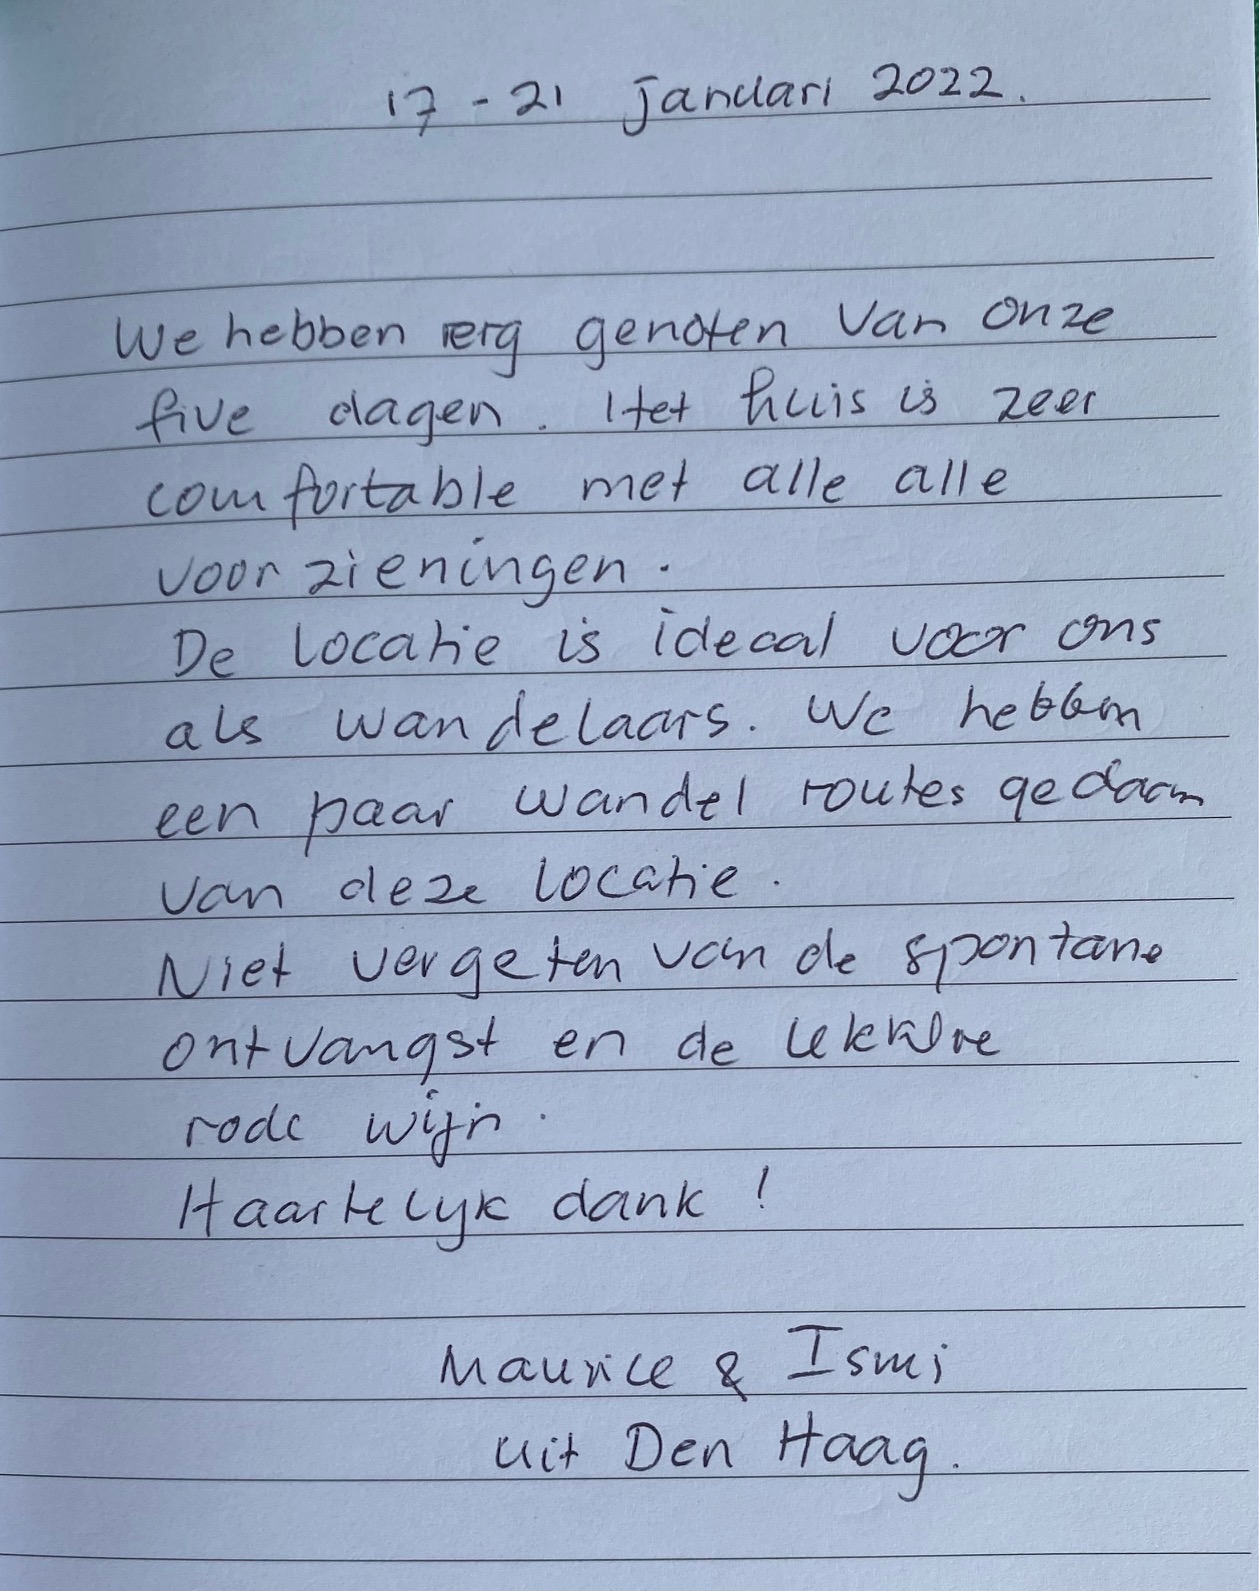 17 - 21 januari 2022.
We hebben erg genoten van onze
five dagen. Het huis is zeer
comfortable met alle alle
voorzieningen.
De locatie is ideaal voor ons
als wandelaars. We hebben
een paar wandel routes gedaan
van deze locatie.
Niet vergeten van de spontane
ontvangst en de lekkere
rode wijn.
Haartelijk dank!
Maurice & Ismi
uit Den Haag.